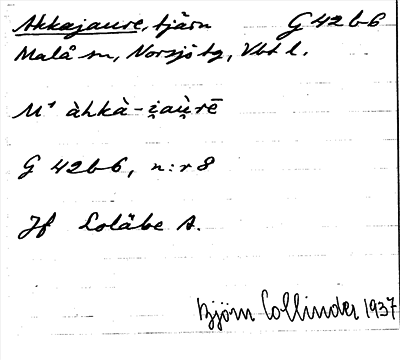 Akkajaure, tjärn G 42 b 6
Malå sn, Norsjö tg, Vbt l.
M¹ àhkà-i̯au̯rē
G 42 b 6, n:r 8
Jf Loläbe A.
Björn Collinder 1937